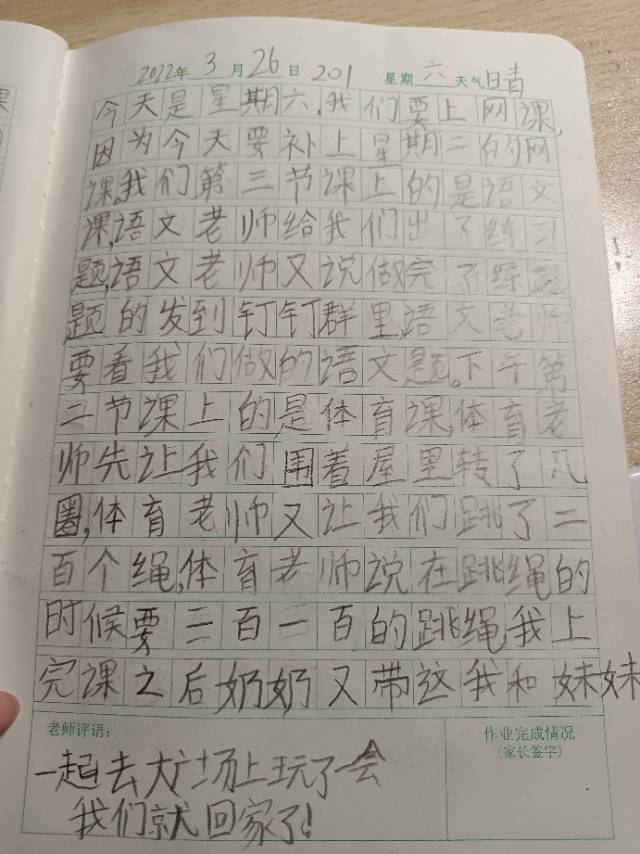 2022年3月26日 201 星期六天气晴
今天是星期六,我们要上网课,
因为今天要补上星期二的网
课,我们第三节课上的是语文
课,语文老师给我们出了练习
题,语文老师又说做完了练习
题的发到钉钉群里,语文老师
要看我们做的语文题。下午第
二节课上的是体育课,体育老
师先让我们围着屋里转了几
圈,体育老师又让我们跳了二
百个绳,体育老师说在跳绳的
时候要一百一百的跳绳,我上
完课之后奶奶又带这我和妹妹
老师评语:
作业完成情况
(家长签字)
一起去大广场上玩了一会
我们就回家了!